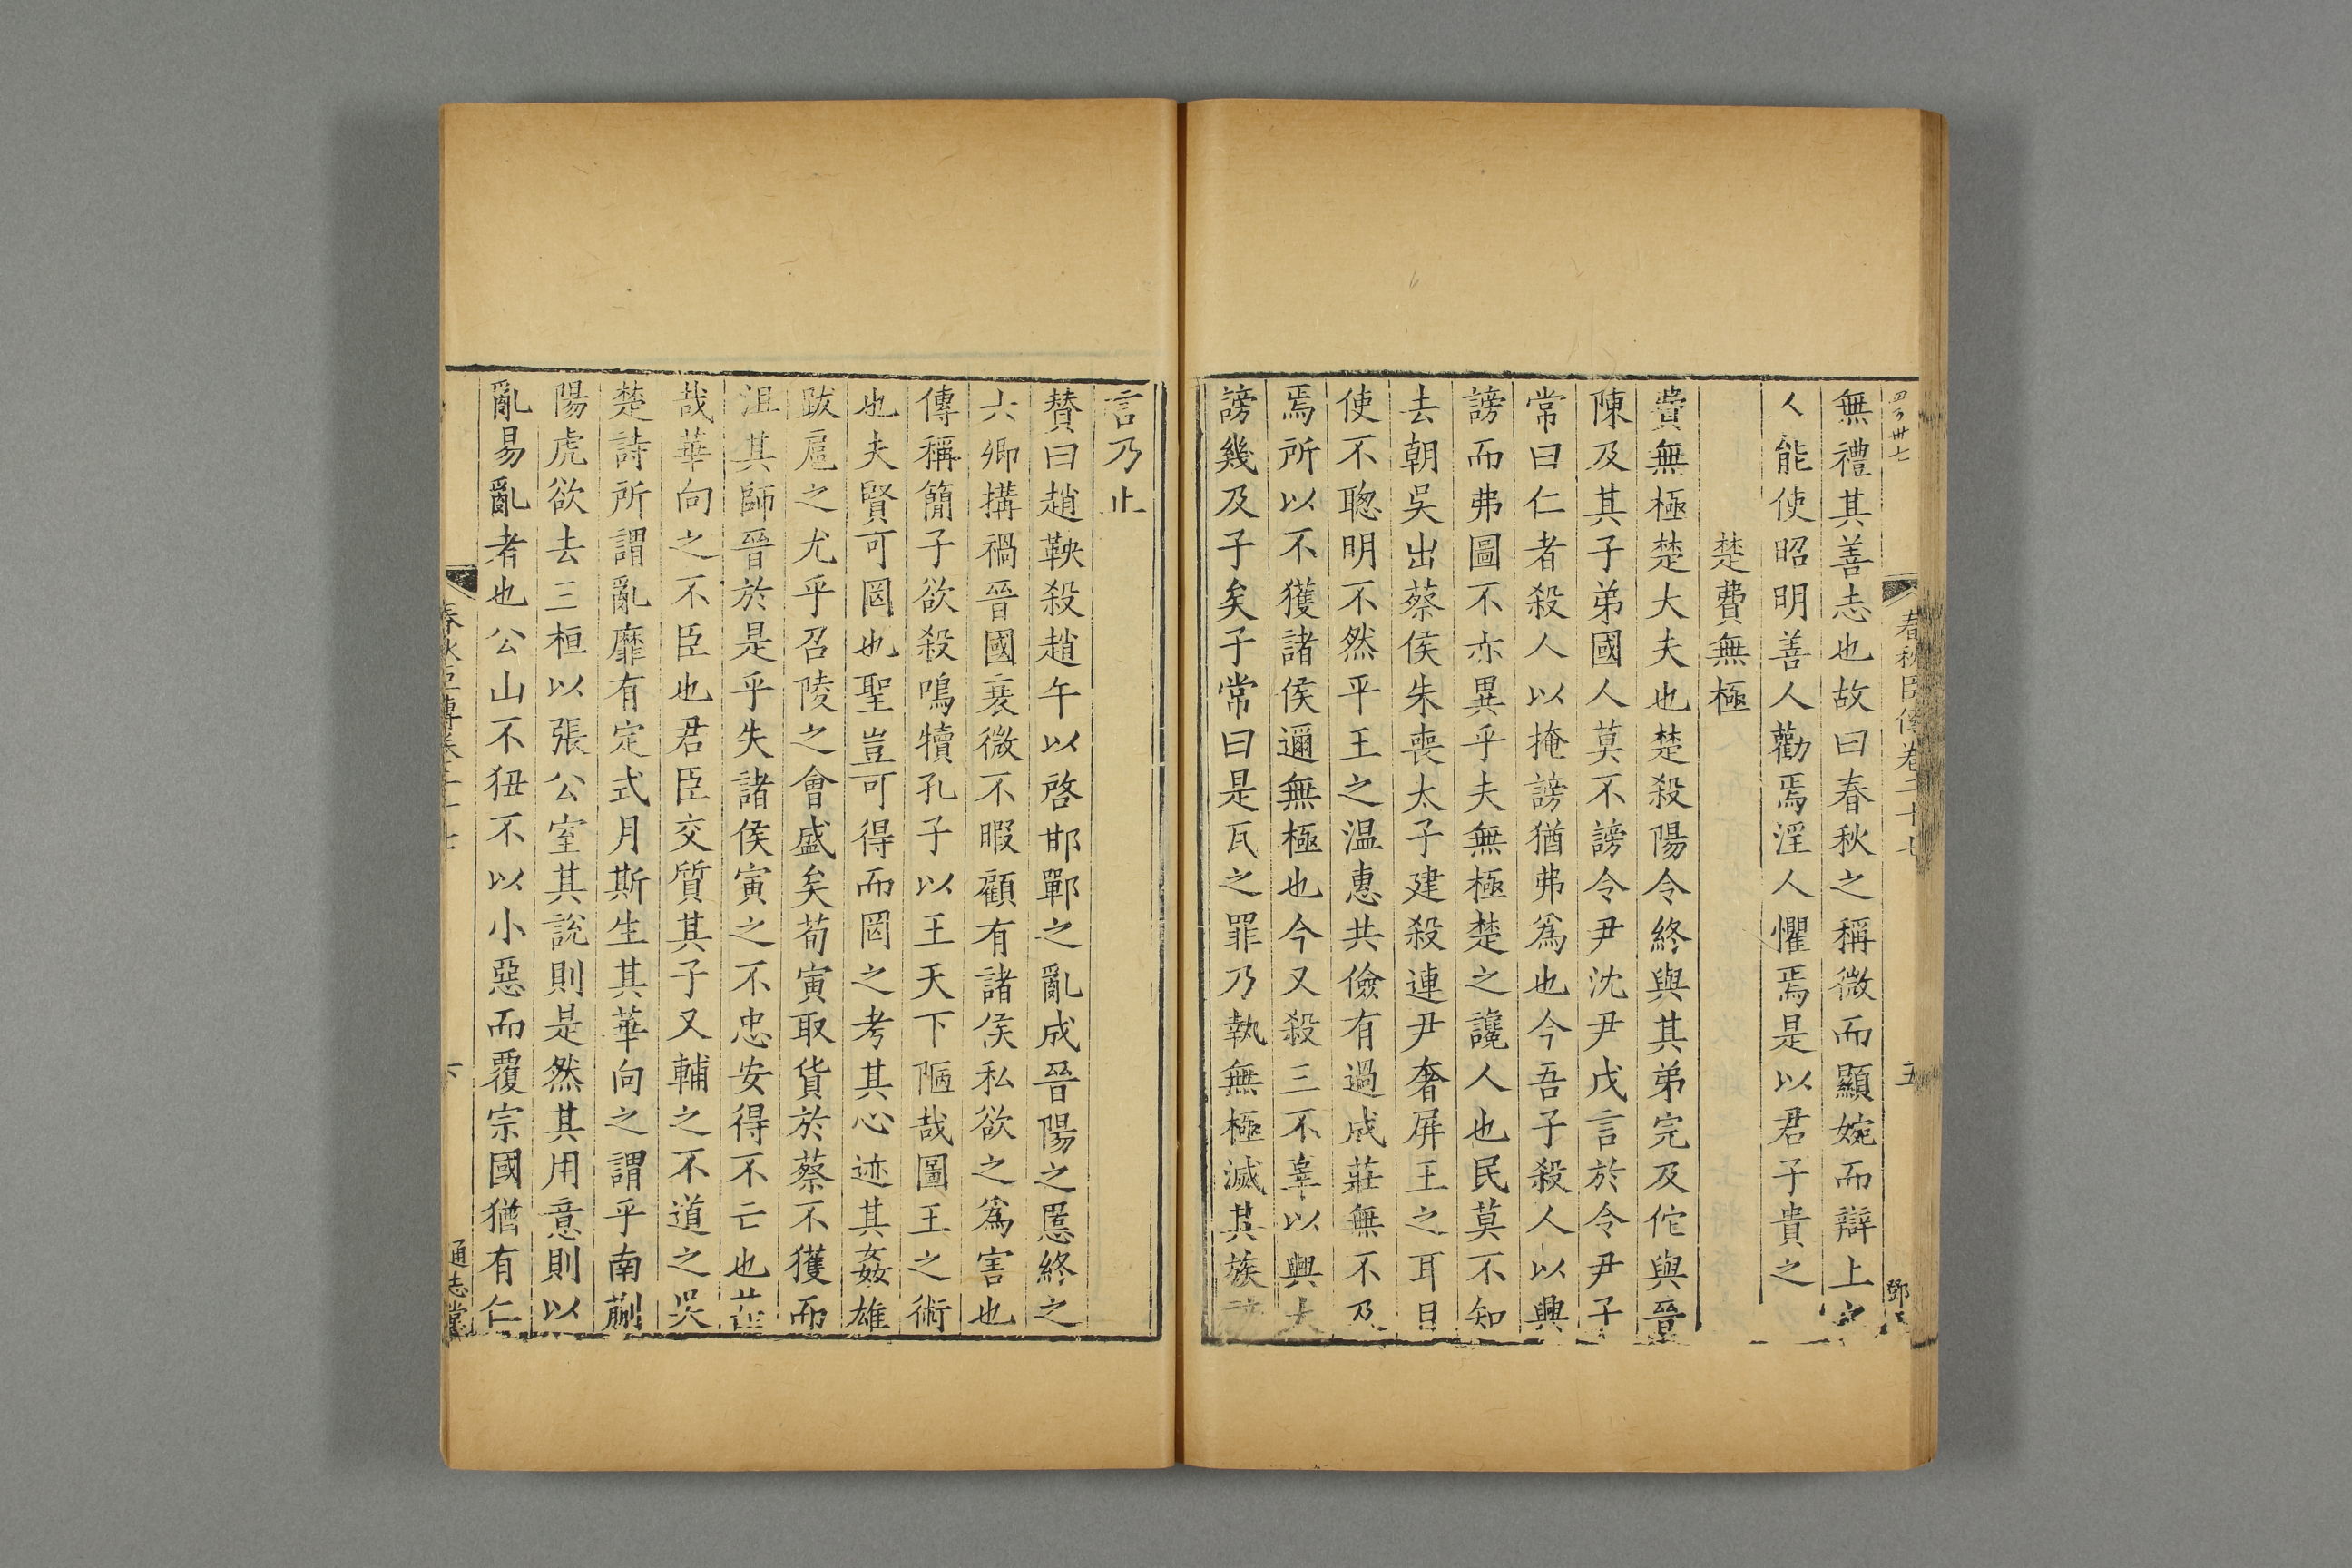 春秋臣傳卷二十七
五
無禮其善志也故曰春秋之稱微而顯婉而辯上之
人能使昭明善人勸焉淫人懼焉是以君子貴之
楚費無極
費無極楚大夫也楚殺陽令終與其弟完及佗與晉
陳及其子弟國人莫不謗令尹沈尹戌言於令尹子
常曰仁者殺人以掩謗猶弗爲也今吾子殺人以興
謗而弗圖不亦異乎夫無極楚之讒人也民莫不知
去朝吳出蔡侯朱喪太子建殺連尹奢屏王之耳目
使不聦明不然平王之温惠共儉有過成莊無不及
焉所以不獲諸侯邇無極也今又殺三不辜以興大
謗幾及子矣子常曰是瓦之罪乃執無極滅其族謗
言乃止
賛曰趙鞅殺趙午以啓邯鄲之亂成晉陽之慝終之
六卿搆禍晉國衰微不暇顧有諸侯私欲之爲害也
傳稱簡子欲殺鳴犢孔子以王天下陋哉圖王之術
也夫賢可罔也聖豈可得而罔之考其心迹其姦雄
跋扈之尤乎召陵之會盛矣荀寅取貨於蔡不獲而
沮其師晉於是乎失諸侯寅之不忠安得不亡也
哉華向之不臣也君臣交質其子又輔之不道之吳
楚詩所謂亂靡有定式月斯生其華向之謂乎南蒯
陽虎欲去三桓以張公室其說則是然其用意則以
亂易亂者也公山不狃不以小惡而覆宗國猶有仁
春秋臣傳卷二十七
六
通志堂